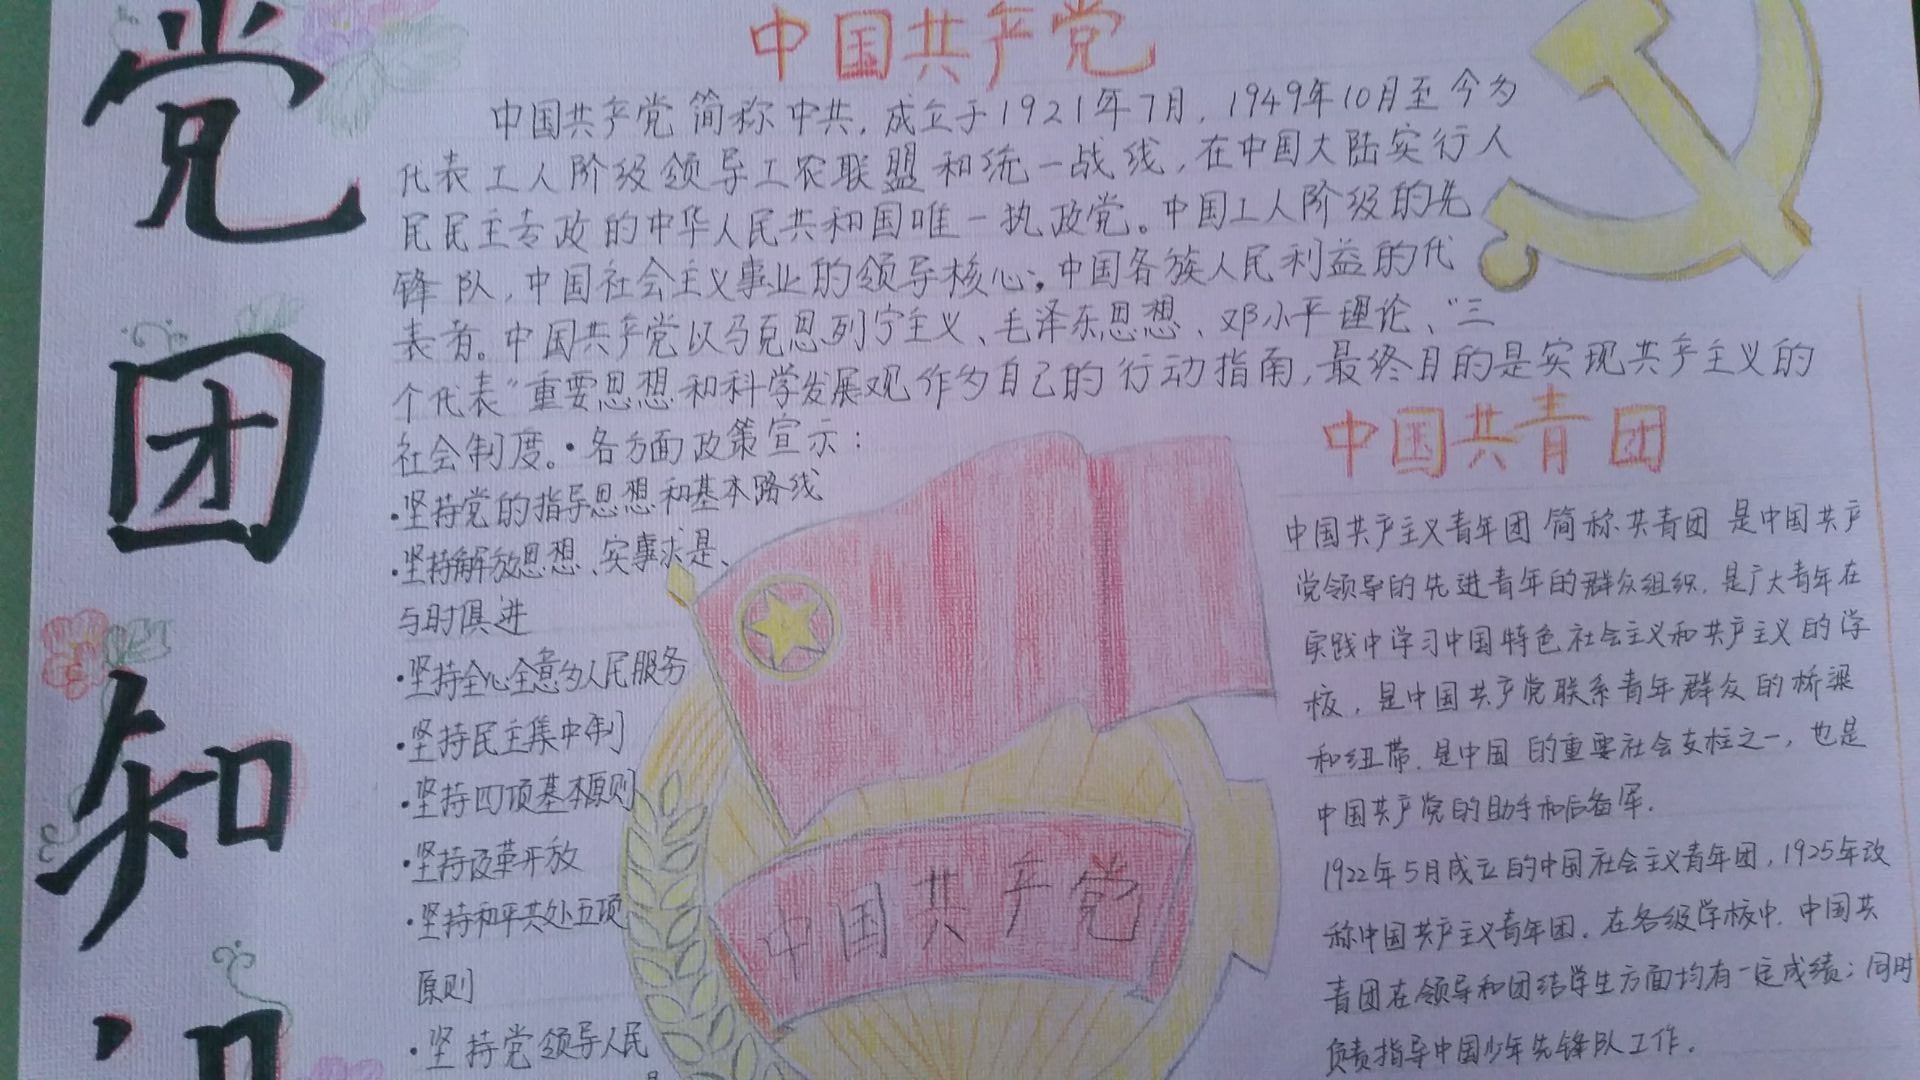 党团知
中国共产党
中国共产党简称中共,成立于1921年7月,1949年10月至今为
代表工人阶级领导工农联盟和统一战线,在中国大陆实行人
民民主专政的中华人民共和国唯一执政党。中国工人阶级的先
锋队,中国社会主义事业的领导核心,中国各族人民利益的代
表者。中国共产党以马克思列宁主义、毛泽东思想、邓小平理论、“三
个代表”重要思想和科学发展观作为自己的行动指南,最终目的是实现共产主义的
社会制度。·各方面政策宣示:
·坚持党的指导思想和基本路线
·坚持解放思想、实事求是、
与时俱进
·坚持全心全意为人民服务
·坚持民主集中制
·坚持四项基本原则
·坚持改革开放
·坚持和平共处五项
原则
·坚持党领导人民
中国共产党
中国共青团
中国共产主义青年团 简称共青团 是中国共产
党领导的先进青年的群众组织,是广大青年在
实践中学习中国特色社会主义和共产主义的学
校,是中国共产党联系青年群众的桥梁
和纽带.是中国的重要社会支柱之一,也是
中国共产党的助手和后备军.
1922年5月成立的中国社会主义青年团,1925年改
称中国共产主义青年团.在各级学校中.中国共
青团在领导和团结学生方面均有一定成绩;同时
负责指导中国少年先锋队工作.